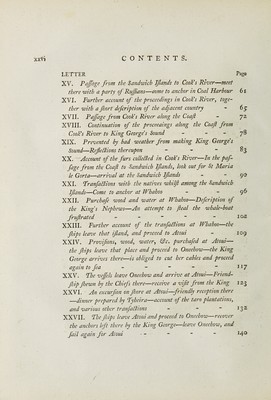 xxvi CONTENTS.
LETTER Page
XV. Paſſage from the Sandwich Iſlands to Cook's River—meet
there with a party of Ruſſians—come to anchor in Coal Harbour 61
XVI. Further account of the proceedings in Cook's River, toge-
ther with a ſhort deſcription of the adjacent country - 65
XVII. Paſſage from Cook's River along the Coaſt - 72
XVIII. Continuation of the proceeaings along the Coaſt from
Cook's River to King George's Sound - - 78
XIX. Prevented by bad weather from making King George's
Sound—Reflections thereupon - - 83
XX. Account of the furs collected in Cook's River—In the paſ-
ſage from the Coaſt to Sandwich Iſlands, look out for St. Maria
le Gorta—arrival at the Sandwich Iſlands - - 90
XXI. Tranſactions with the natives whilſt among the Sandwich
Iſlands—Come to anchor at Whahoo - - 96
XXII. Purchaſe wood and water at Whahoo—Deſcription of
the King's Nephews—An attempt to ſteal the whale-boat
fruſtrated - - - - 102
XXIII. Further account of the tranſactions at Whahoo—the
ſhips leave that iſland, and proceed to Atoui - 109
XXIV. Proviſions, wood, water, &c. purchaſed at Atoui—
the ſhips leave that place and proceed to Oneehow—the King
George arrives there—is obliged to cut her cables and proceed
again to ſea - - - - 117
XXV. The veſſels leave Oneehow and arrive at Atoui—Friend-
ſhip ſhewn by the Chiefs there—receive a viſit from the King 123
XXVI. An excurſion on ſhore at Atoui—friendly reception there
—dinner prepared by Tyheira—account of the taro plantations,
and various other tranſactions - - - 132
XXVII. The ſhips leave Atoui and proceed to Oneehow—recover
the anchors left there by the King George—leave Oneehow, and
ſail again for Atoui - - - - 140